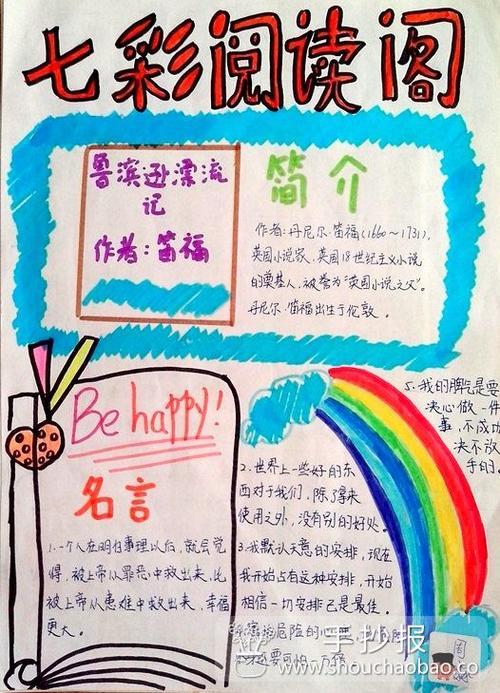 七彩阅读阁
鲁滨逊漂流
记
作者:笛福
简介
作者:丹尼尔·笛福(1660~1731),
英国小说家,英国18世纪主义小说
的奠基人,被誉为"英国小说之父"。
丹尼尔·笛福出生于伦敦。
Be happy!
名言
1.一个人在明白事理以后,就会觉
得,被上帝从罪恶中救出来,比
被上帝从患难中救出来,幸福
更大。
2.世界上一些好的东
西对于我们,除了拿来
使用之外,没有别的好处。
3.我默认天意的安排,现在
我开始占有这种安排,开始
相信一切安排已是最佳。
危险的心理
还要可怕
5.我的脾气是要
决心做一件
事,不成功
决不放
手的。
手抄报
www.shouchaobao.co